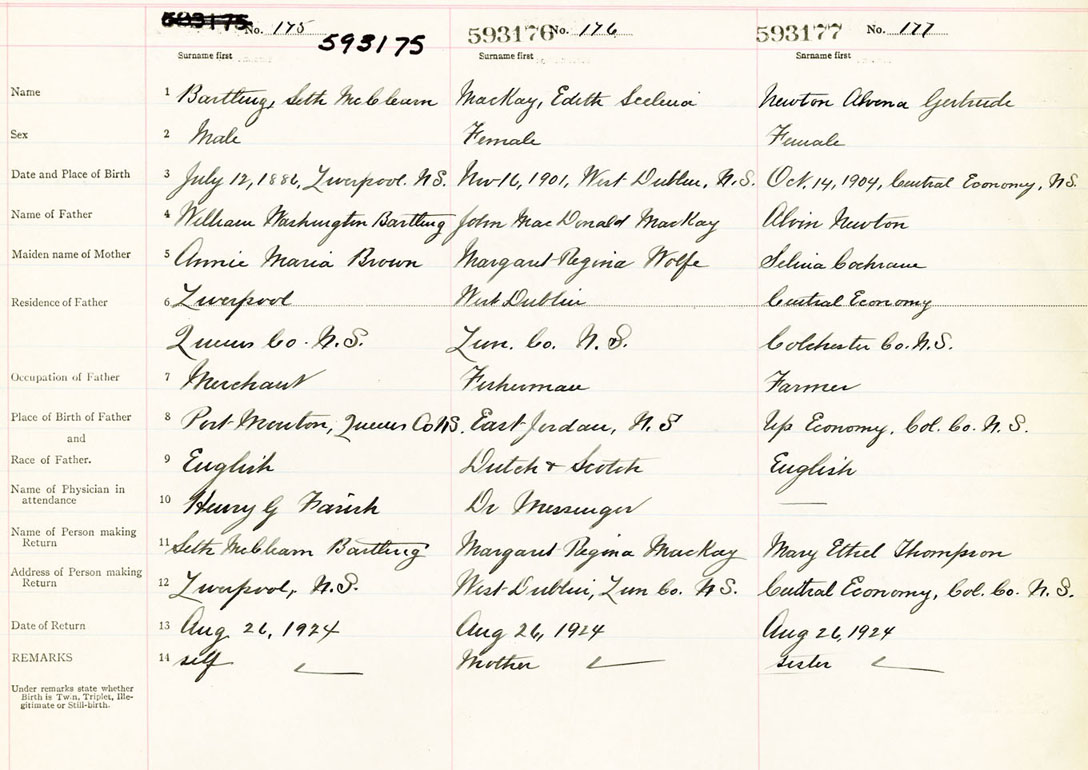 593175 No. 175 593175 593176 No. 176 593177 No. 177
Surname first Surname first Surname first
Name 1 Bartling, Seth McClearn MacKay, Edith Newton Alvena Gertrude
Sex 2 Male Female Female
Date and Place of Birth 3 July 12, 1886, Liverpool. N.S. Nov 16, 1901, West Dublin, N.S. Oct. 14, 1904, Central Economy, N.S.
Name of Father 4 William Washington Bartling John MacDonald MacKay Alvin Newton
Maiden name of Mother 5 Annie Maria Brown Margaret Regina Wolfe Selina Cochrane
Residence of Father 6 Liverpool West Dublin Central Economy
Queens Co. N.S. Lun. Co. N.S. Colchester Co. N.S.
Occupation of Father 7 Merchant Fisherman Farmer
Place of Birth of Father 8 Port Mouton, Queens Co NS. East Jordan, N.S Up Economy, Col. Co. N.S.
and
Race of Father. 9 English Dutch & Scotch English
Name of Physician in
attendance 10 Henry G Farish Dr Messenger —
Name of Person making
Return 11 Seth McClearn Bartling Margaret Regina MacKay Mary Ethel Thompson
Address of Person making
Return 12 Liverpool, N.S. West Dublin, Lun Co. N.S. Central Economy, Col. Co. N.S.
Date of Return 13 Aug 26, 1924 Aug 26, 1924 Aug 26, 1924
REMARKS 14 self Mother sister
Under remarks state whether
Birth is Twin, Triplet, Ille-
gitimate or Still-birth.